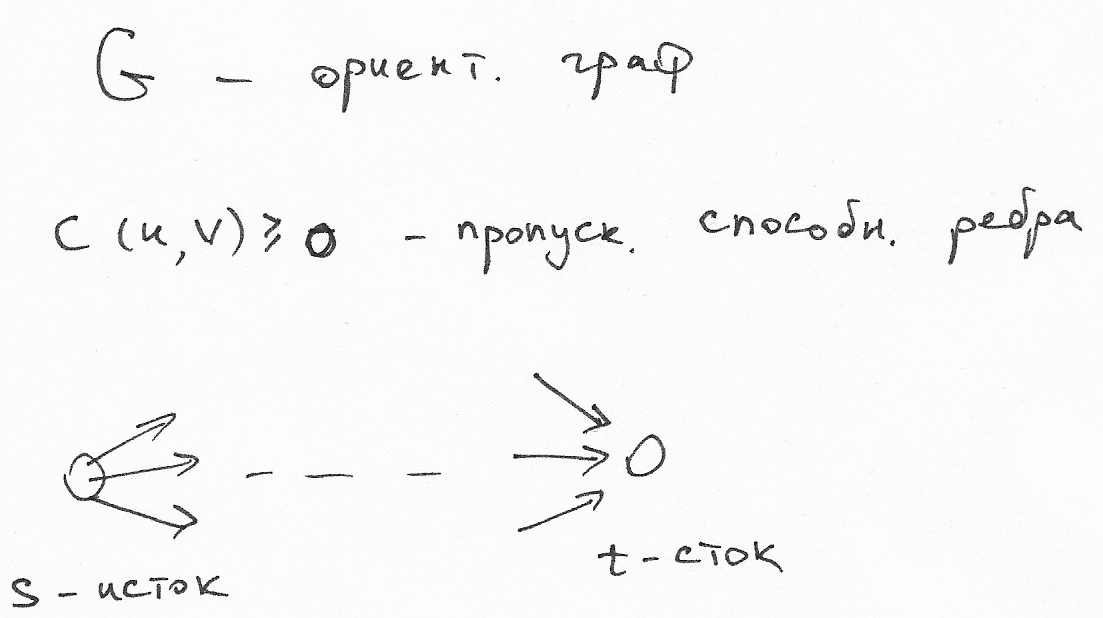 G - ориент. граф
C (u,v) ≥ 0 - пропуск. способн. ребра
t - сток
s - исток